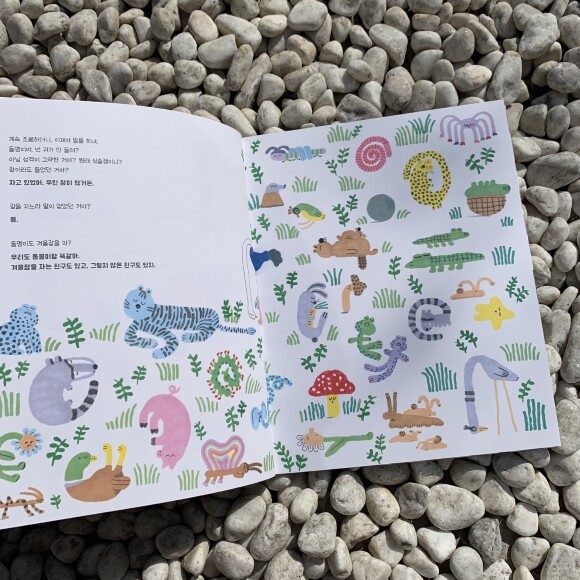 계속 조용하더니, 이제야 말을 하네.
돌멩이야, 넌 귀가 안 들려?
아님 성격이 고약한 거야? 원래 심술쟁이니?
잠이라도 들었던 거야?
자고 있었어. 우린 잠이 많거든.
잠을 자느라 말이 없었던 거야?
응.
돌멩이도 겨울잠을 자?
우리도 동물이랑 똑같아.
겨울잠을 자는 친구도 있고, 그렇지 않은 친구도 있지.